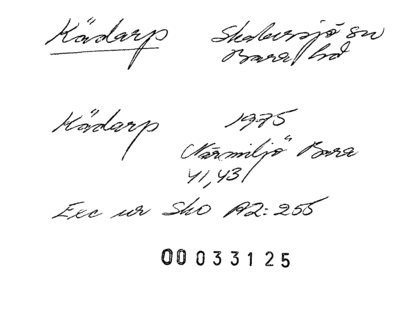 Kädarp Skabersjö sn
Bara hd
Kädarp 1975
"Närmiljö" Bara
41, 43
Exc ur Sko A2: 255
00033125